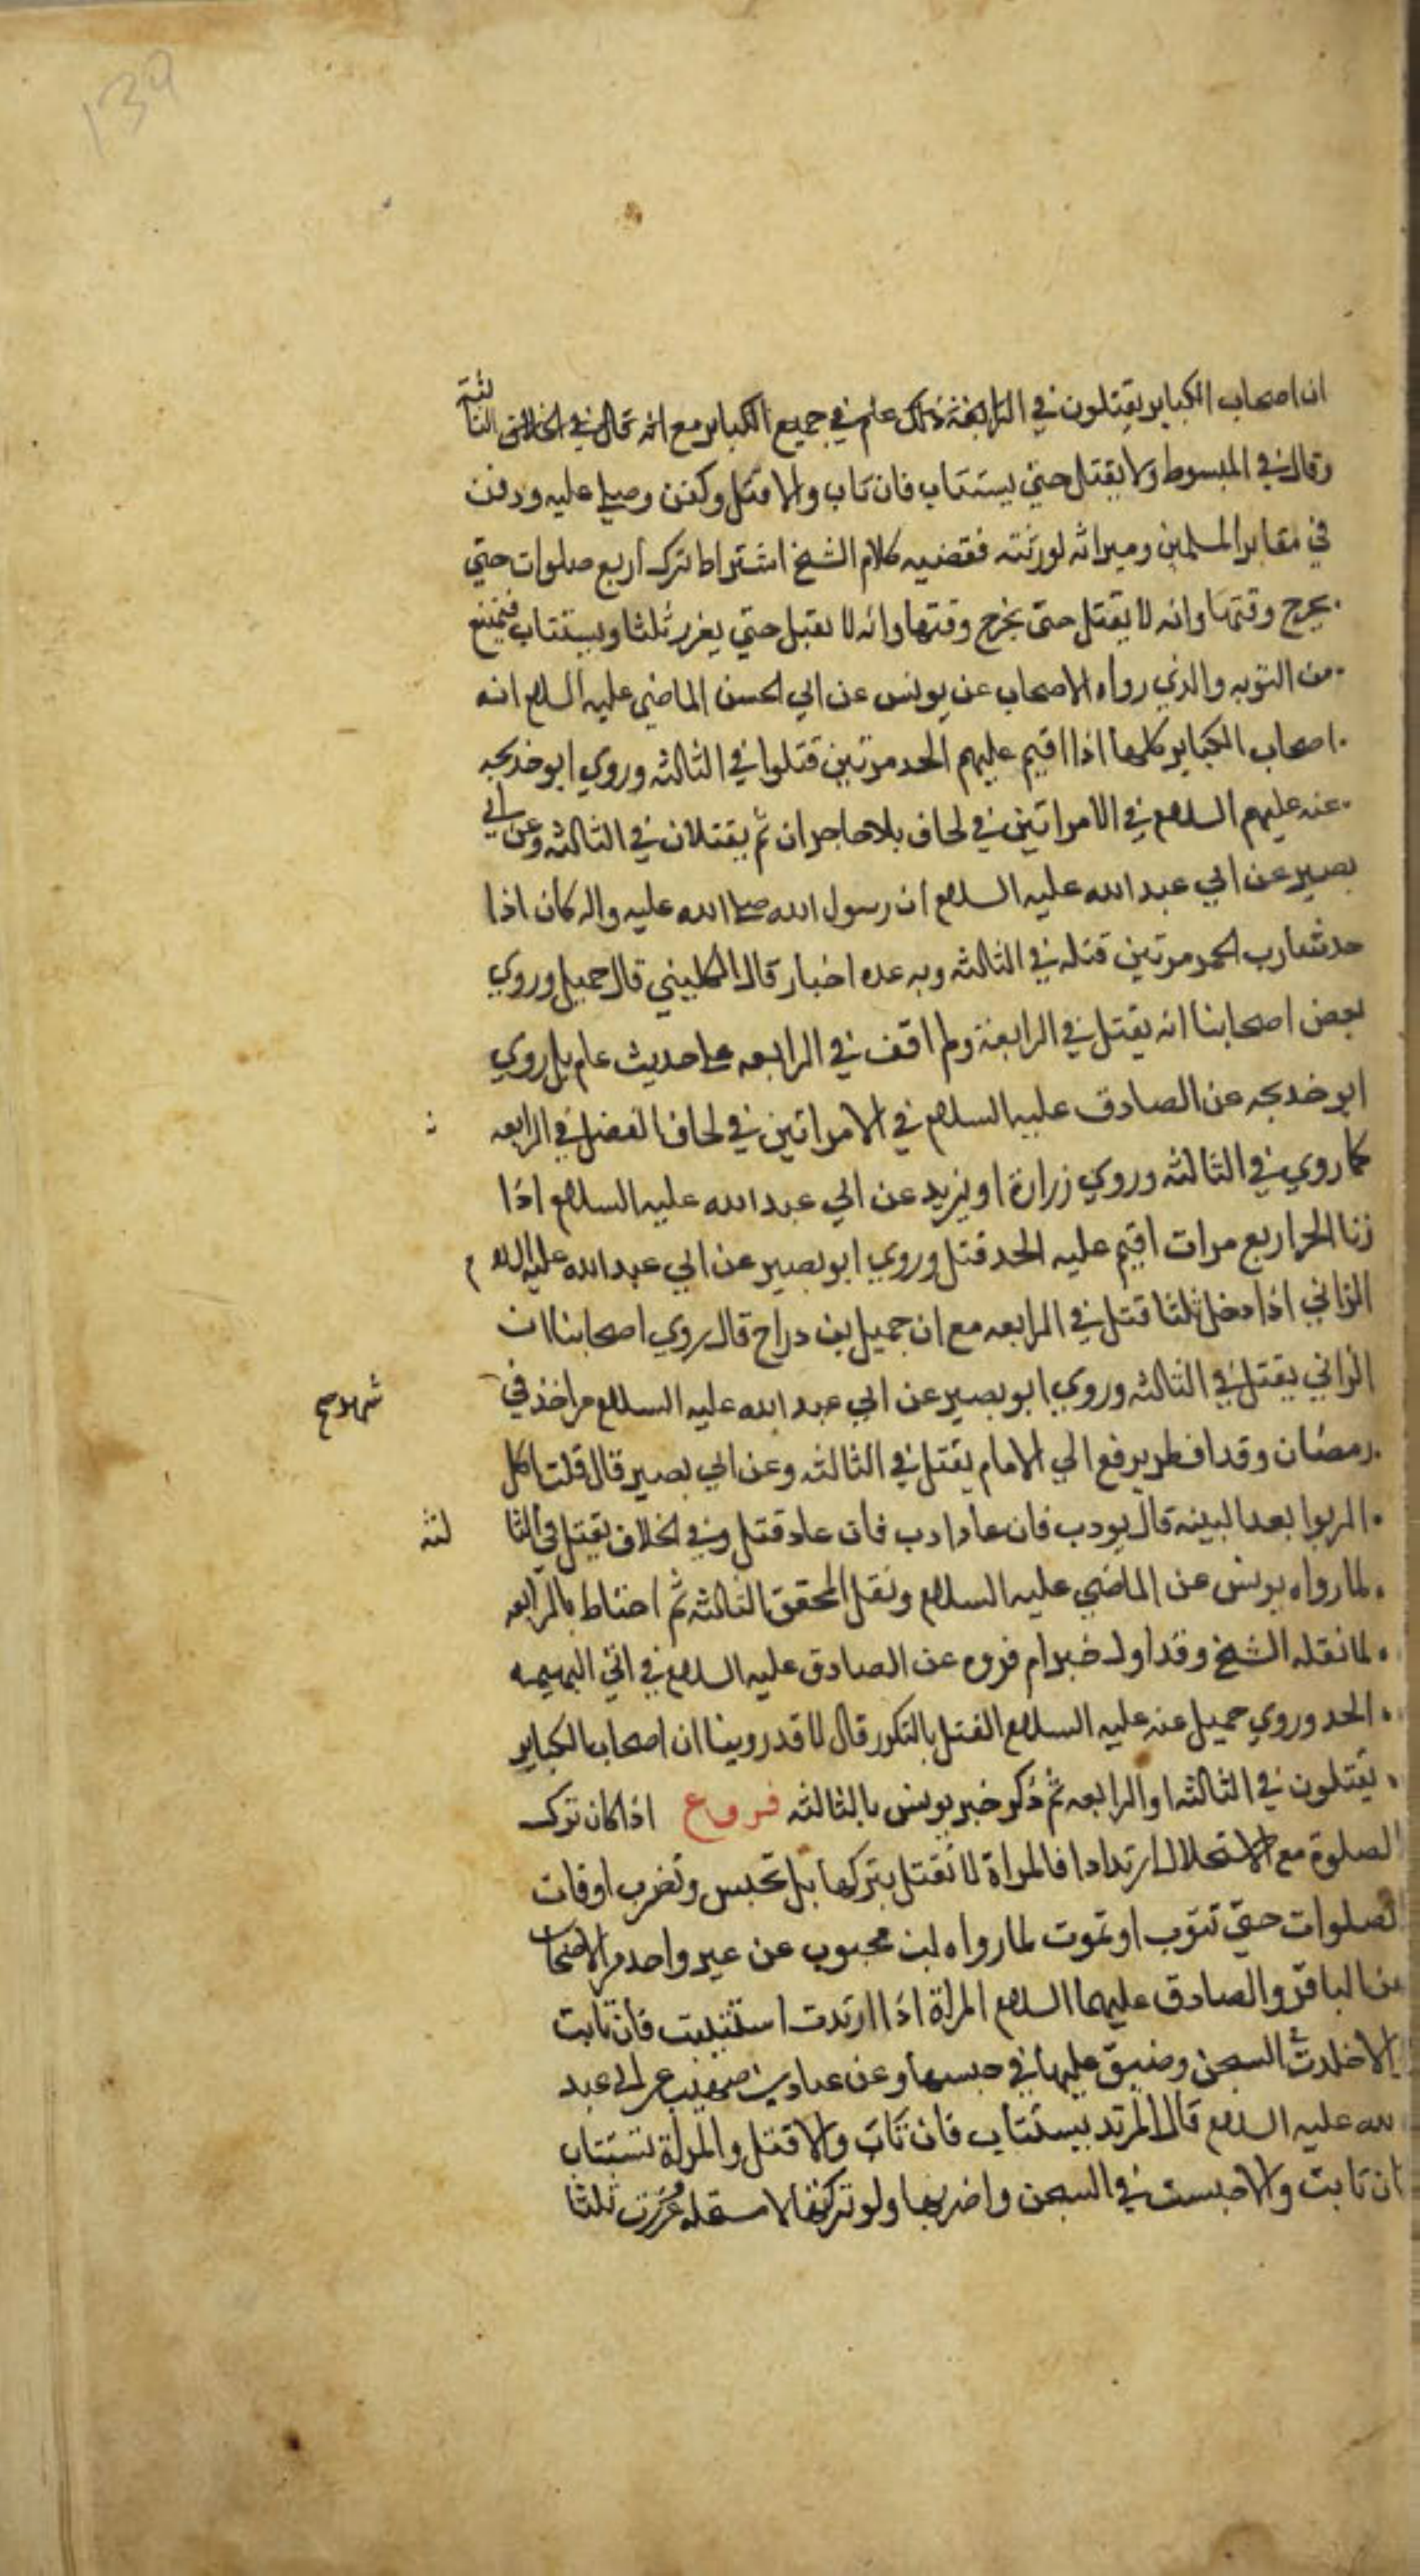 139
ان اصحاب الكباير يقتلون في الرابعة وذلك عام في جميع الكباير مع انه قال في الخلاف في الثالثة
وقال في المبسوط ولا يقتل حتي يستتاب فان تاب والا قتل وكفن وصلي عليه ودفن
في مقابر المسلمين وميراثه لورثته فقضيه كلام الشيخ اشتراط ترك اربع صلوات حتي
يخرج وقتها وانه لا يقتل حتي يخرج وقتها وانه لا يقتل حتي يعزر ثلثا ويستتاب فيمتنع
من التوبه والذي رواه الاصحاب عن يونس عن ابي الحسن الماضي عليه السلام انه
اصحاب الكباير كلها اذا اقيم عليهم الحد مرتين قتلوا في الثالثه وروي ابو خديجه
عنه عليهم السلام في الامراتين في لحاف بلا حاجز ان ثم يقتلان في الثالثه وعن ابي
بصير عن ابي عبد الله عليه السلام ان رسول الله صلي الله عليه واله كان اذا
حد شارب الخمر مرتين قتله في الثالثه وبه عده اخبار قال الكليني قال جميل وروي
بعض اصحابنا انه يقتل في الرابعة ولم اقف في الرابعه علي حديث عام بل روي
ابو خديجه عن الصادق عليه السلام في الامراتين في لحاف القتل في الرابعه
كما روي في الثالثه وروي زرارة او بريد عن ابي عبد الله عليه السلام اذا
زنا الحر اربع مرات اقيم عليه الحد قتل وروي ابو بصير عن ابي عبد الله عليه السلام
الزاني اذا ثلثا قتل في الرابعه مع ان جميل بن دراج قال روي اصحابنا ان
الزاني يقتل في الثالثه وروي ابو بصير عن ابي عبد الله عليه السلام من اخذ في
شهر صح
رمضان وقد افطر يرفع الي الامام يقتل في الثالثه وعن ابي بصير قال قلت اكل
الربوا بعد البينه قال يودب فان عاد ادب فان عاد قتل وفي الخلاف يقتل في الثا لثه
لما رواه يونس عن الماضي عليه السلام ونقل المحقق الثالثه ثم احتاط بالرابعه
لما نقله الشيخ وقد اول خبر ام فروه عن الصادق عليه السلام في اتي البهيمه
الحد وروي جميل عنه عليه السلام القتل بالتكرر قال لا قد روينا ان اصحاب الكباير
يقتلون في الثالثه او الرابعه ثم ذكر خبر يونس بالثالثه فروع اذا كان ترك
الصلوة مع الاستحلال ارتدادا فالمراة لا تقتل بتركها بل تحبس وتضرب اوقات
الصلوات حتي تتوب او تموت لما رواه ابن محبوب عن غير واحد من الاصحاب
عن الباقر والصادق عليهما السلام المراة اذا ارتدت استتيبت فان تابت
والا خلدت السجن وضيق عليها في حبسها وعن عباد بن صهيب عن ابي عبد
الله عليه السلام قال المرتد يستتاب فان تاب والا قتل والمراة تستتاب
فان تابت والا حبست في السجن واضربها ولو تركتها لا مستحله عزرت ثلثا